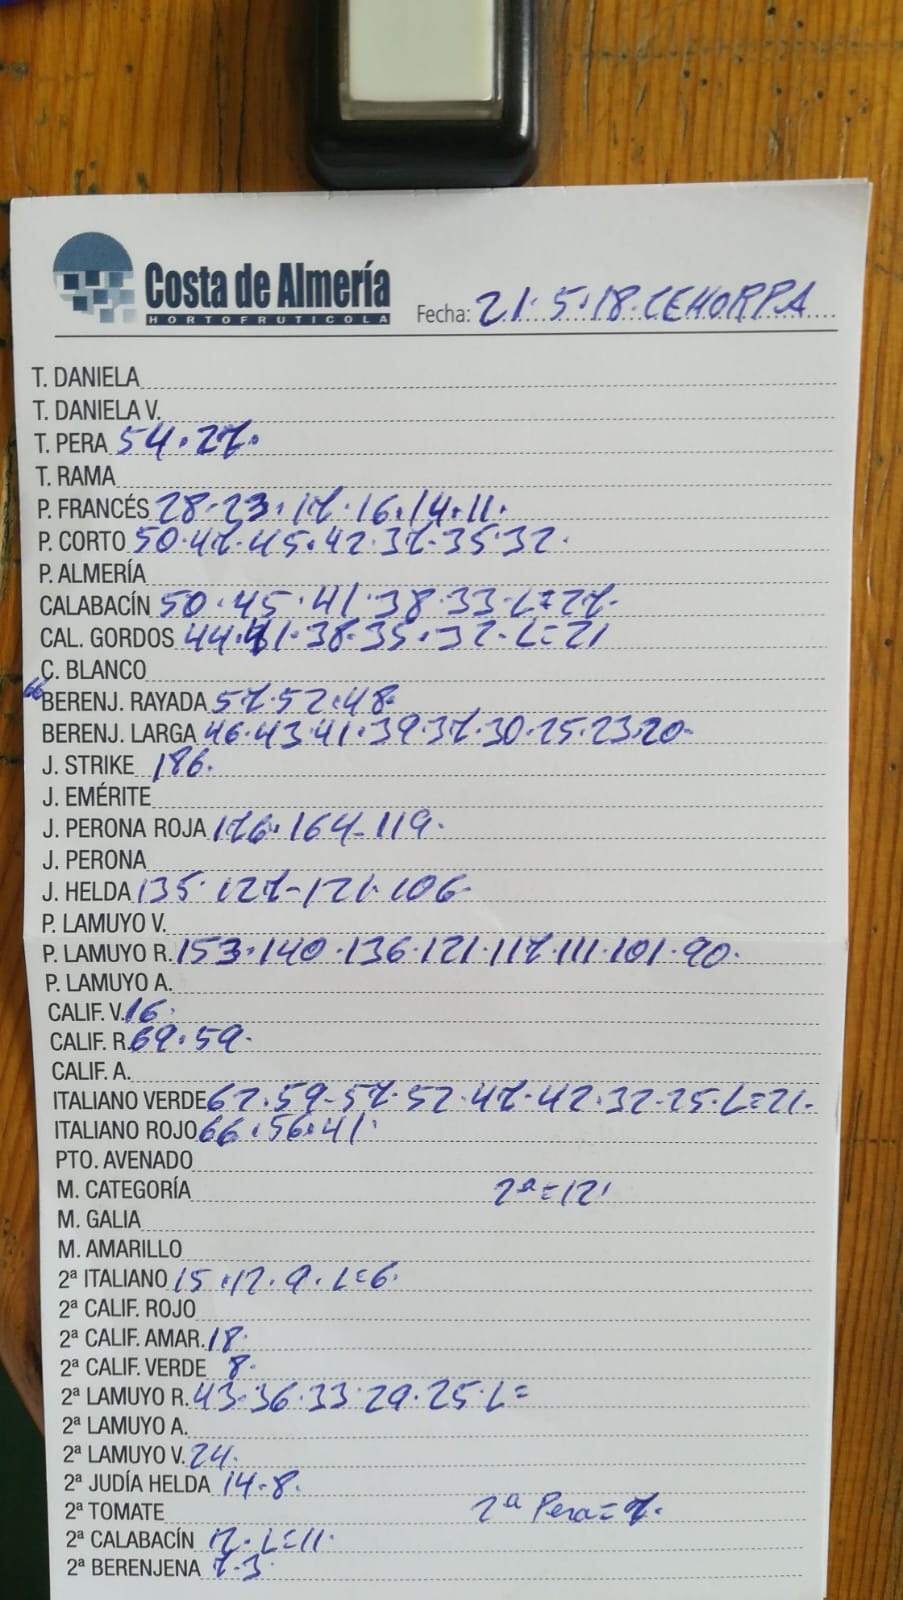 Costa de Almería
HORTOFRUTICOLA
Fecha: 21.5.18.CEHORPA
T. DANIELA
T. DANIELA V.
T. PERA 54.27.
T. RAMA
P. FRANCÉS 28-23.17.16.14.11.
P. CORTO 50.47.45.42.37-35.32.
P. ALMERÍA
CALABACÍN 50.45.41.38.33-L=27.
CAL. GORDOS 44.41.38-35.32-L=21
C. BLANCO
66 BERENJ. RAYADA 57.52.48.
BERENJ. LARGA 46.43.41.39.37.30.25.23.20-
J. STRIKE 186.
J. EMÉRITE
J. PERONA ROJA 176.164-119.
J. PERONA
J. HELDA 135.127-121.106-
P. LAMUYO V.
P. LAMUYO R. 153.140.136.121.117.111.101.90.
P. LAMUYO A.
CALIF. V. 16.
CALIF. R. 69.59.
CALIF. A.
ITALIANO VERDE 62.59-57.52.47.42.32-25.L=21-
ITALIANO ROJO 66.56.41.
PTO. AVENADO
M. CATEGORÍA 2ª=12'
M. GALIA
M. AMARILLO
2ª ITALIANO 15.12.9.L=6.
2ª CALIF. ROJO
2ª CALIF. AMAR. 18.
2ª CALIF. VERDE 8.
2ª LAMUYO R. 43-36.33.29.25.L=
2ª LAMUYO A.
2ª LAMUYO V. 24.
2ª JUDÍA HELDA 14-8.
2ª TOMATE 2ª Pera=7.
2ª CALABACÍN 12.L=11.
2ª BERENJENA 7-3